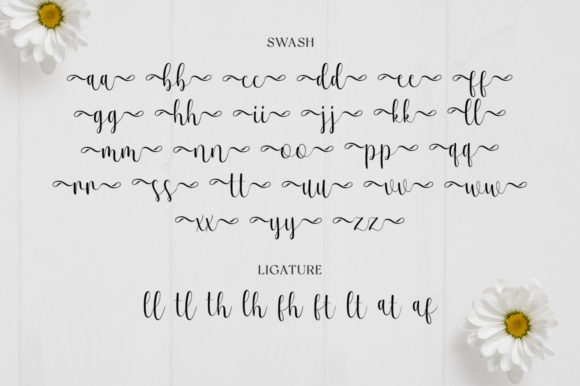 SWASH
aa bb cc dd ee ff
gg hh ii jj kk ll
mm nn oo pp qq
rr ss tt uu vv ww
xx yy zz
LIGATURE
ll tl th lh fh ft lt at af